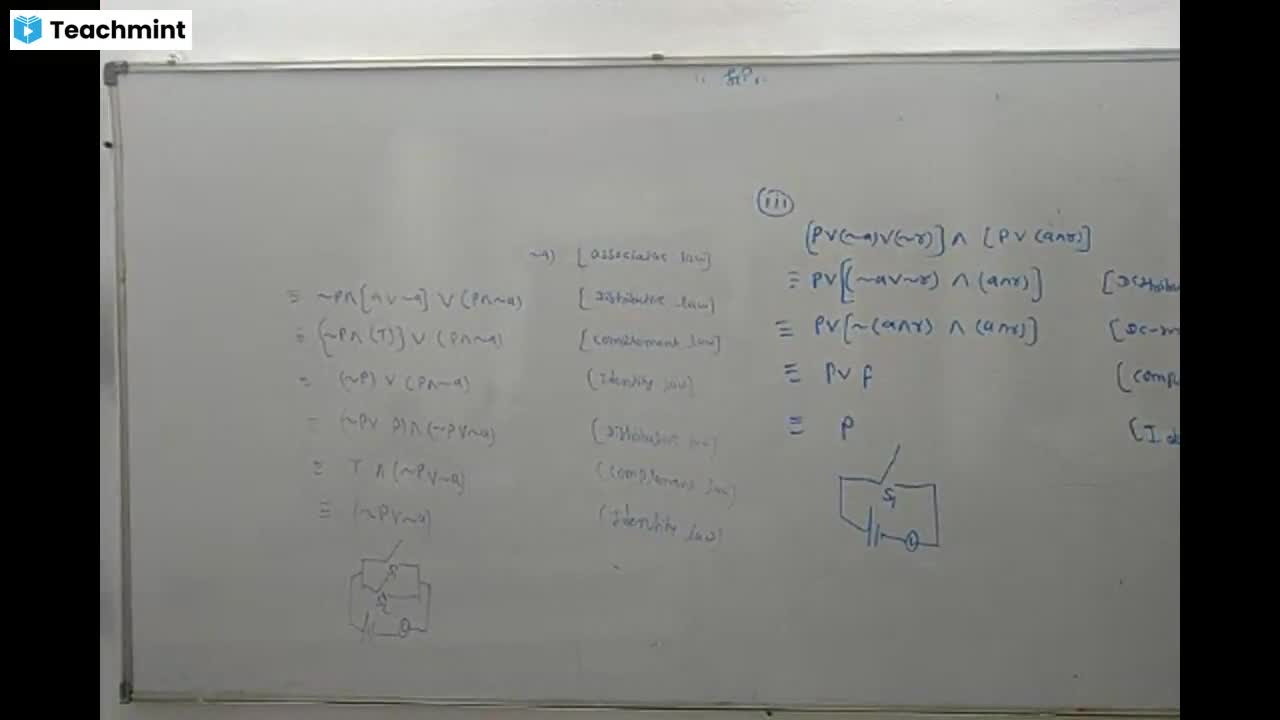 Teachmint
~q) [associative law]
≡ ~p∧[q∨~q] ∨ (p∧~q) [Distributive law]
≡ [~p∧(T)] ∨ (p∧~q) [complement law]
≡ (~p) ∨ (p∧~q) (Identity law)
≡ (~p∨ p)∧(~p∨~q) (Distributive law)
≡ T ∧ (~p∨~q) (complement law)
≡ (~p∨~q) (Identity law)
S1
S2
(iii)
[p∨(~q)∨(~r)] ∧ [p∨(q∧r)]
≡ p∨[(~q∨~r) ∧ (q∧r)] [Distribu
≡ p∨[~(q∧r) ∧ (q∧r)] [De-m
≡ p∨ F [comp
≡ p [Ide
S1
L